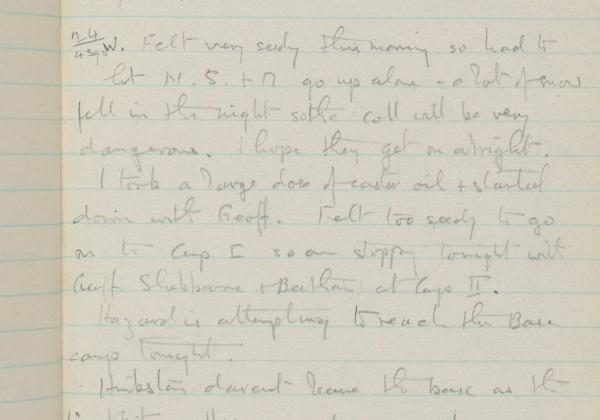 W. Felt very seedy this morning so had to
let N. S. + n go up alone - a lot of snow
fell in the night so the coll will be very
dangerous. I hope they get on alright.
I took a large dose of castor oil + started
down with Geoff. Felt too seedy to go
on to Camp I so am stopping tonight with
Geoff Shebbeare + Beetham at Camp II.
Hazard is attempting to reach the Base
camp tonight.
Hinkston daren't leave the base as the